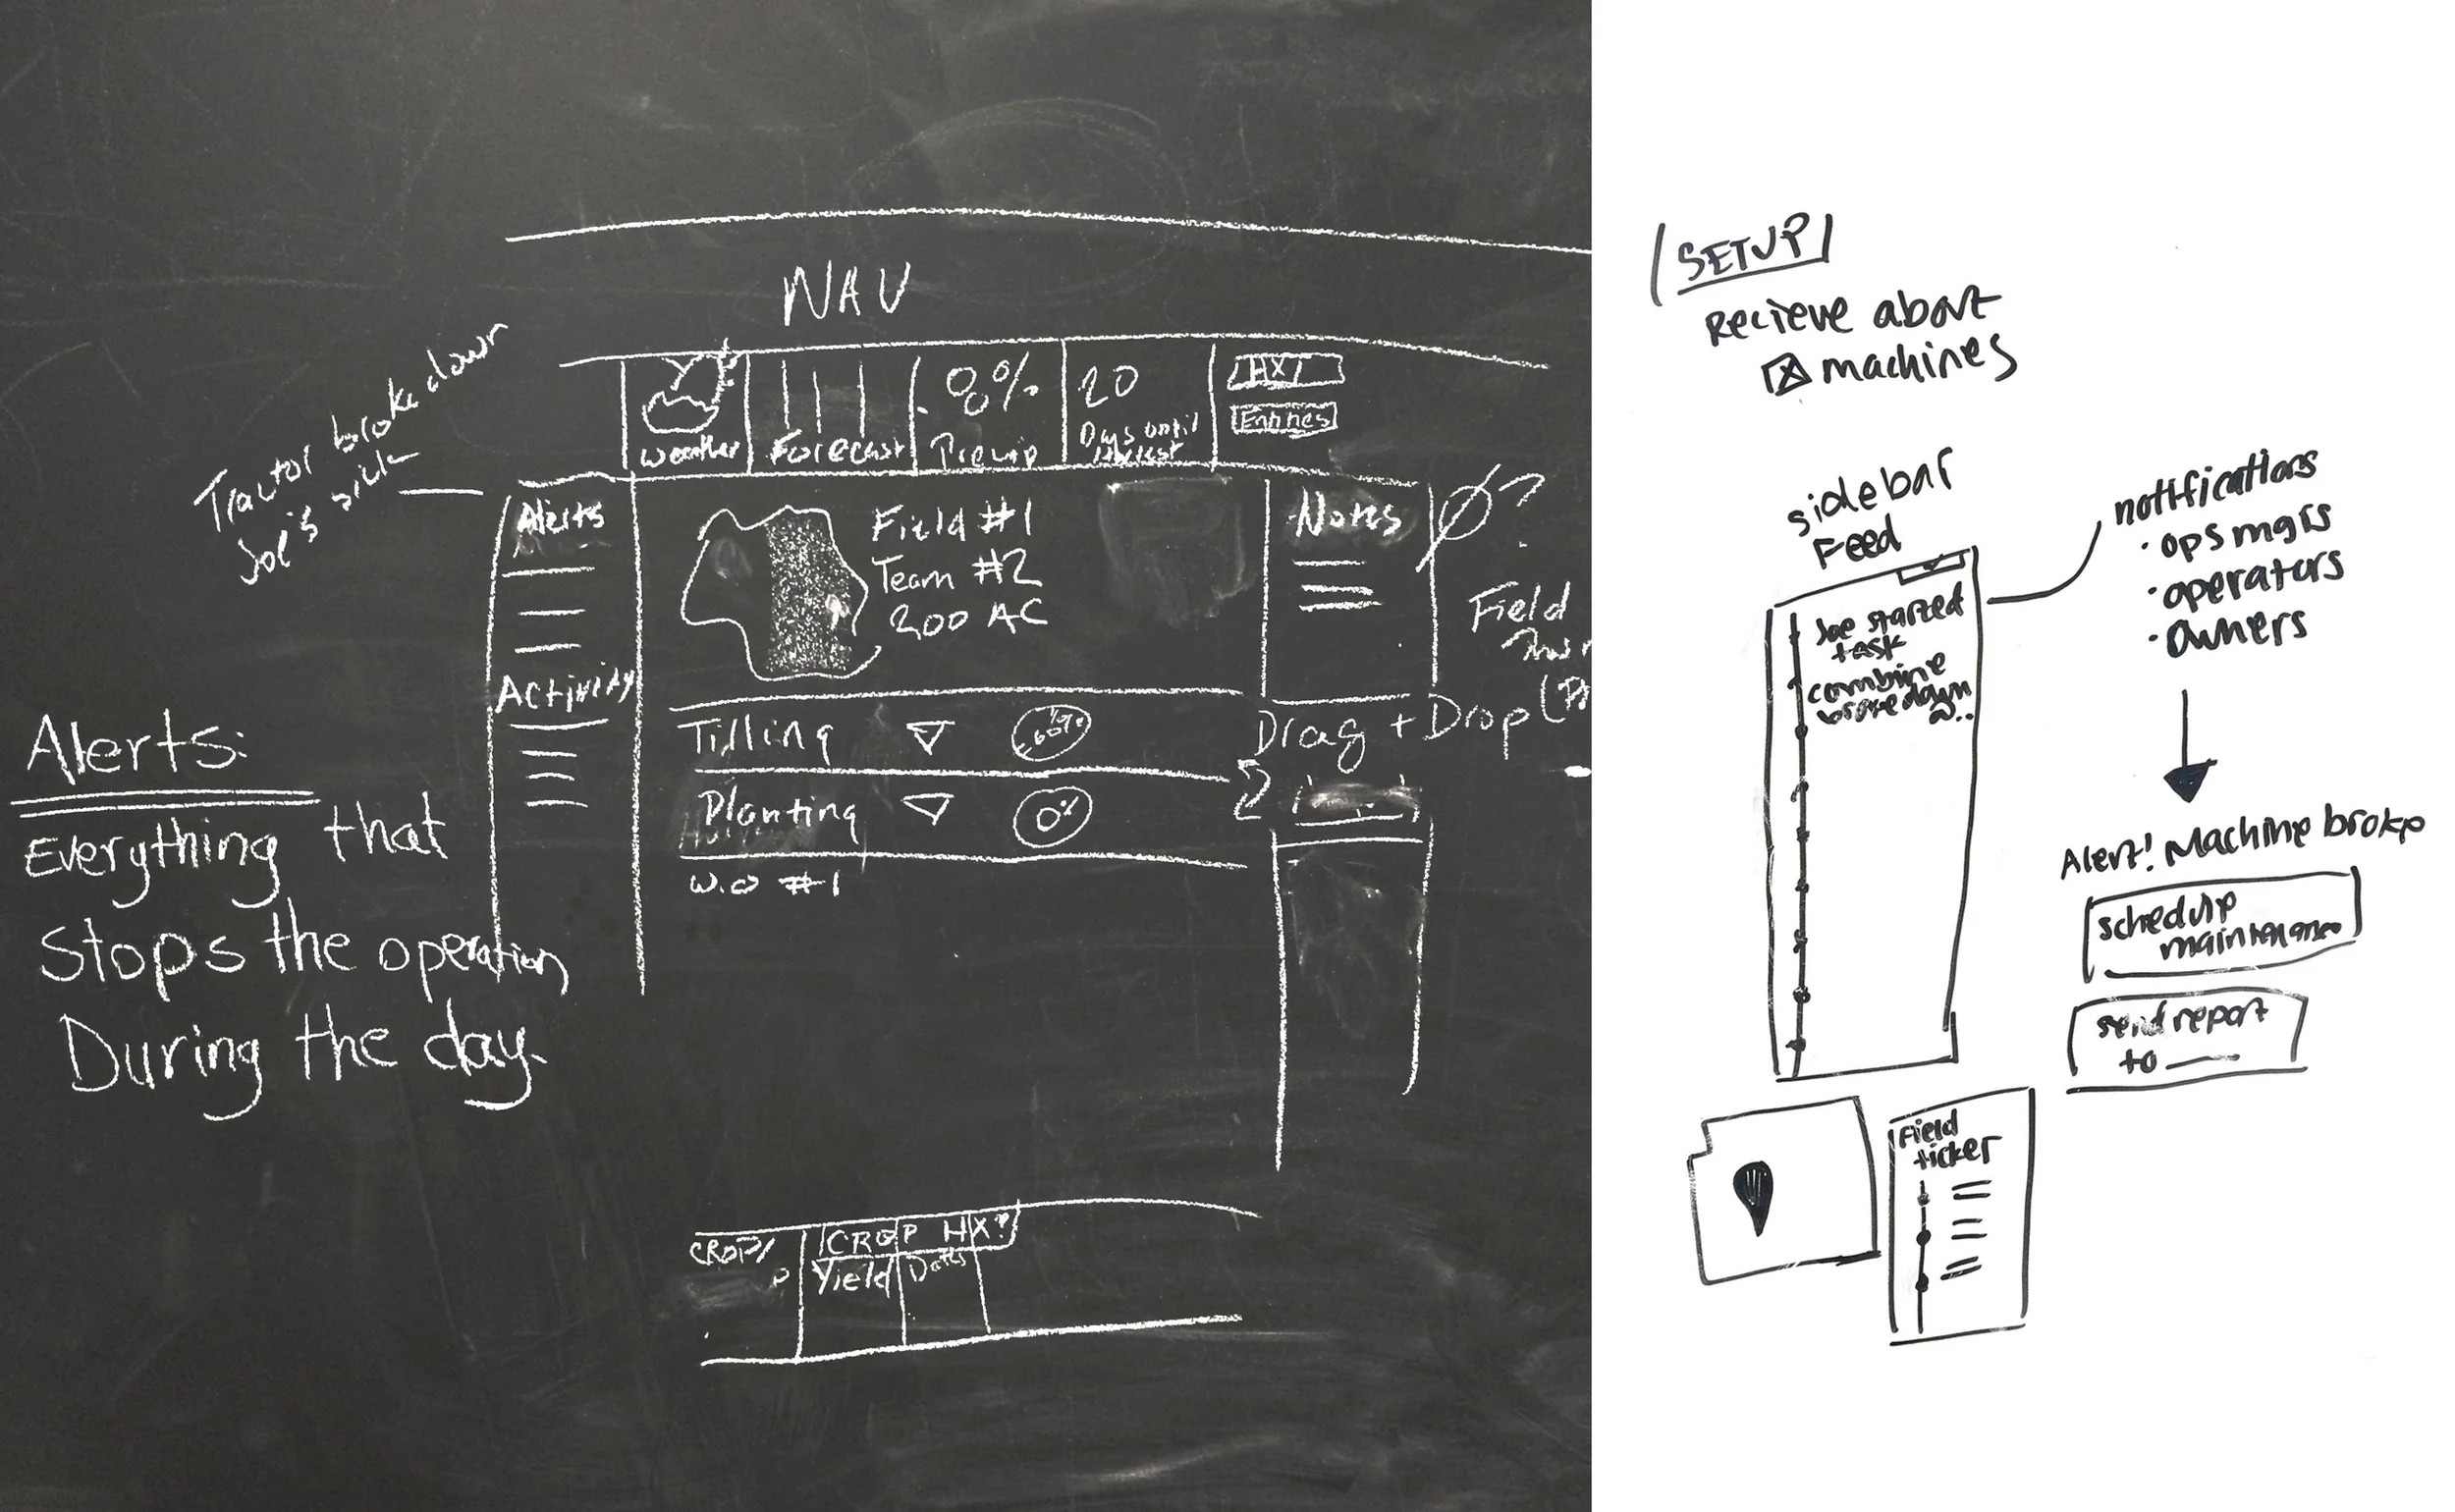 NAV
Tractor broke down
Joe's sick
weather
Forecast
%
Precip
20
Days until
HX/
Entries
Alerts
Activity
Field #1
Team #2
200 AC
Notes
?
Field
Drag + Drop
Tilling
60%
Planting
0%
W.O #1
Alerts:
Everything that
Stops the operation
During the day.
CROP/
CROP HX?
Yield
Dates
SETUP
Recieve about
machines
sidebar
Feed
Joe started
task
combine
broke down
@..
notifications
• ops mgrs
• operators
• owners
Alert! Machine broke
schedule
maintenance
send report
to
Field
ticker